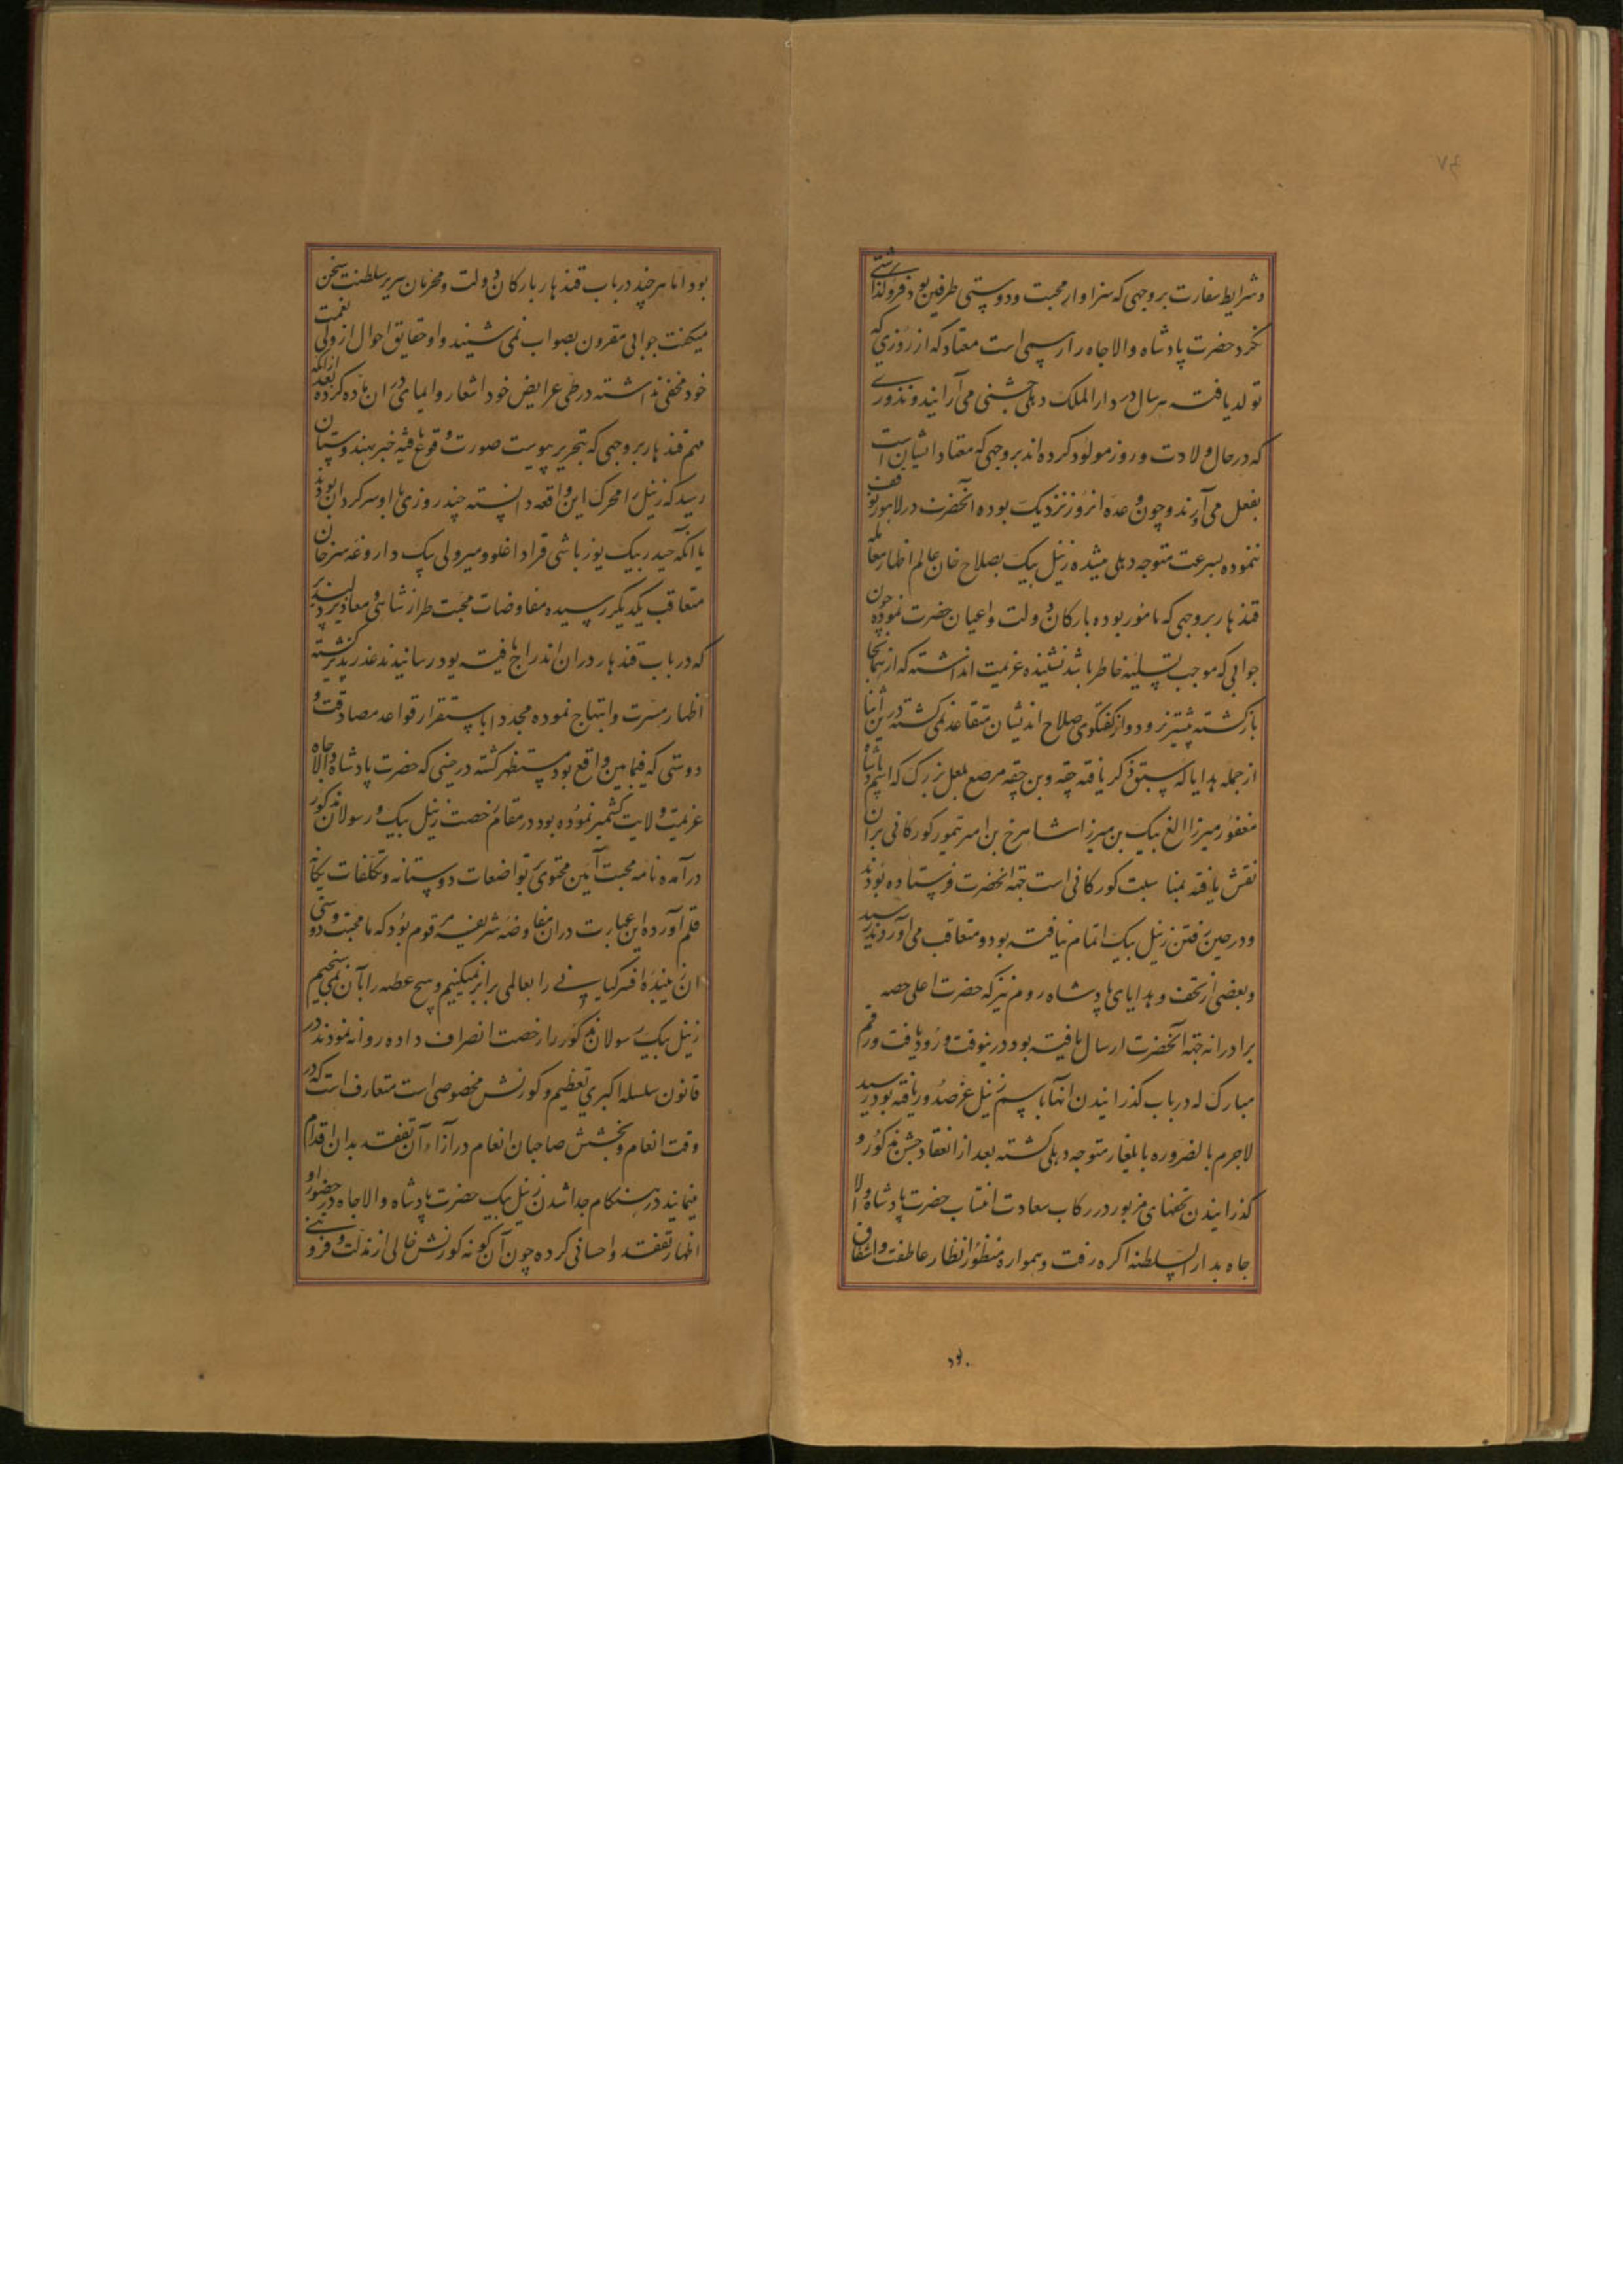 وشرایط سفارت بروجهی که سزاوار محبت ودوستی طرفین بود فروگذاشتی
نکرد حضرت پادشاه والاجاه را رسمی است معتاد که از روزی که
تولد یافته هر سال در دار الملک دهلی جشنی می آرایند ونذوری
که در حال ولادت و روز مولود کرده اند بروجهی که معتاد ایشان است
بفعل می آورند وچون وعده انروز نزدیک بوده آنحضرت در لاهور توقف
ننموده بسرعت متوجه دهلی میشده زنیل بیک بصلاح خان عالم اظهار معامله
قندهار بروجهی که مامور بوده بارکان دولت واعیان حضرت نموده چون
جوابی که موجب تسلیه خاطر باشد نشنیده عزیمت انداشته که از همانجا
بازگشته پیشتر نرود واز گفتگوی صلاح اندیشان متقاعد نمی گشته در این اثنا
از جمله هدایا که سبق ذکر یافته چقه وبن چقه مرصع بلعل بزرگ که اسم پادشاه
مغفور میرزا الغ بیک بن میرزا شاهرخ بن امیر تیمور کورکانی بران
نقش یافته بمناسبت کورکانی است جهة انحضرت فرستاده بودند
ودر حین رفتن زنیل بیک اتمام نیافته بود ومتعاقب می آوردند رسید
وبعضی از تحف وهدایای پادشاه روم نیز که حضرت اعلی حصه
برادرانه جهة آنحضرت ارسال یافته بود درینوقت ورود یافت ورقم
مبارک که در باب گذرانیدن انها باسم زنیل عز صدور یافته بود رسید
لاجرم بالضروره بایلغار متوجه دهلی گشته بعد از انعقاد جشن مذکور و
گذرانیدن تحفهای مزبور در رکاب سعادت انتساب حضرت پادشاه والا
جاه بدار السلطنه اکره رفت وهمواره منظور انظار عاطفت واشفاق
بود
بود اما هر چند در باب قندهار بارکان دولت ومحرمان سریر سلطنت سخن
میگفت جوابی مقرون بصواب نمی شنید واو حقایق احوال از ولی نعمت
خود مخفی نداشته در طی عرایض خود اشعار وایمای دران ماده کرده بعد ازانکه
مهم قندهار بروجهی که بتحریر پیوست صورت وقوع یافته خبر بهندوستان
رسید که زنیل را محرک این واقعه دانسته چند روزی با او سرگردان بودند
تا آنکه حیدر بیک یوزباشی قراداغلو ومیر ولی بیک داروغه سرخان
متعاقب یکدیگر رسیده مفاوضات محبت طراز شاهی ومعاذیر دلپسند
که در باب قندهار دران اندراج یافته بود رسانیدند عذر پذیر گشته
اظهار مسرت وابتهاج نموده مجددا باستقرار قواعد مصادقت و
دوستی که فیمابین واقع بود مستظهر گشته در حینی که حضرت پادشاه والاجاه
عزیمت ولایت کشمیر نموده بود در مقام رخصت زنیل بیک ورسولان مذکور
درآمده نامه محبت آیین محتوی بر تواضعات دوستانه وتکلفات یگانه
قلم آورده این عبارت دران مفاوضه شریفه مرقوم بود که ما محبت ودوستی
ان زیبنده افسر کیانی را بعالمی برابر نمیکنیم وهیچ عطیه را بآن نمی سنجیم
زنیل بیک ورسولان مذکور را رخصت انصراف داده روانه نمودند در
قانون سلسله اکبری تعظیم وکورنش مخصوصی است متعارف است که در
وقت انعام وبخشش صاحبان انعام در ازاء آن تفقد بدان اقدام
مینمایند در هنگام جدا شدن زنیل بیک حضرت پادشاه والاجاه در حضور او
اظهار تفقد واحسانی کرده چون آن گونه کورنش خالی از مذلت وفروتنی